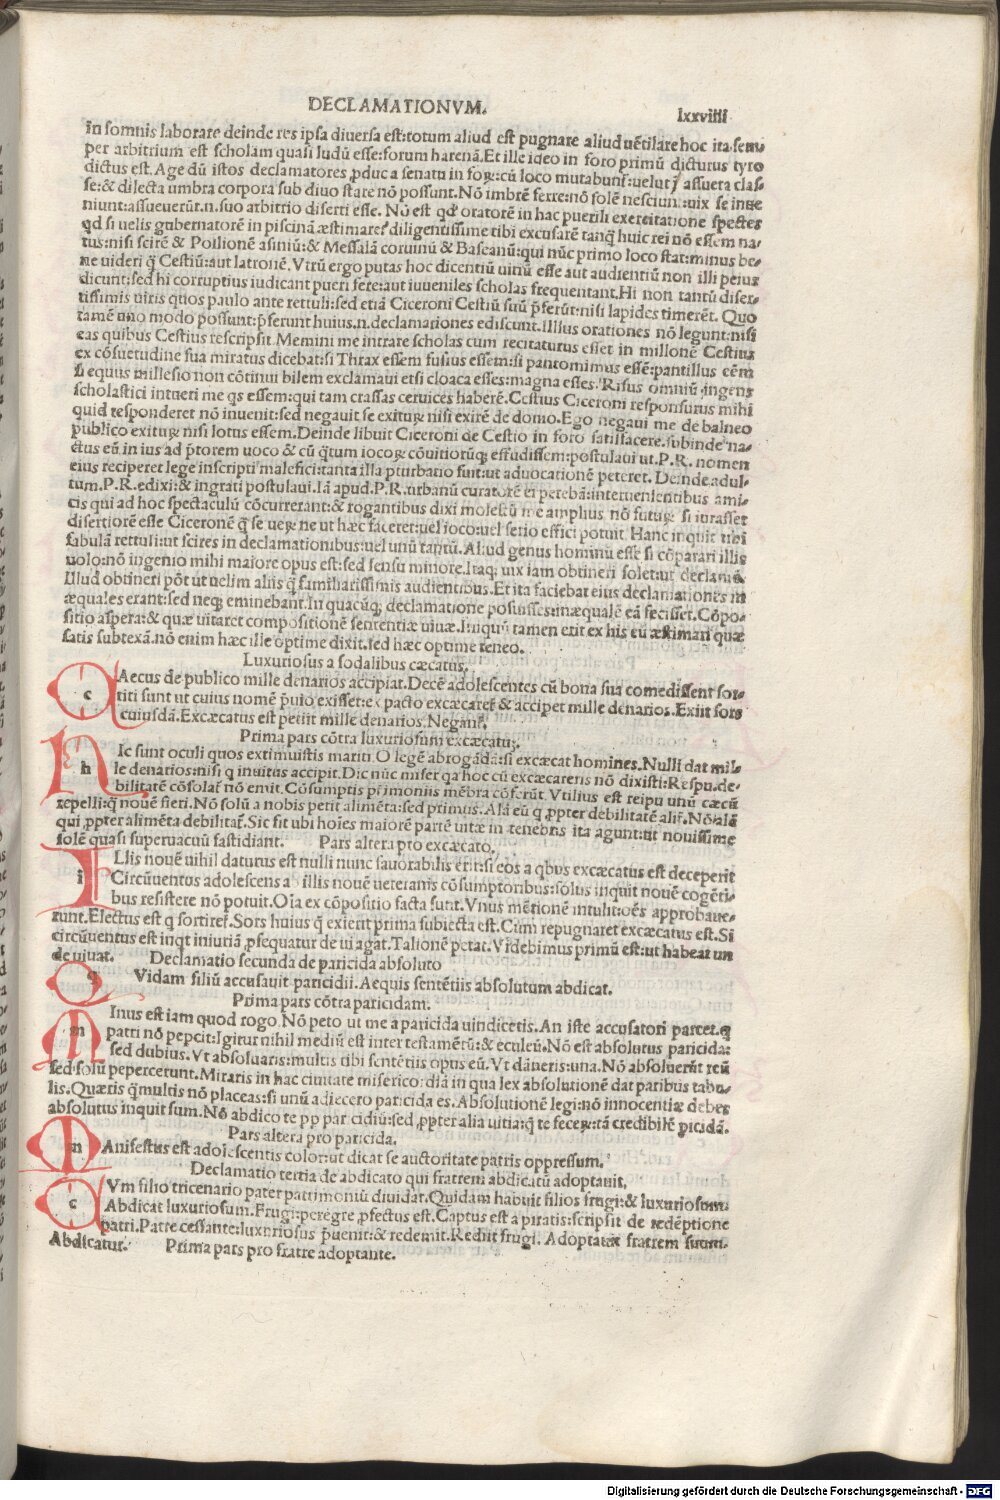 DECLAMATIONVM. lxxviiii
in somnis laborare deinde res ipsa diuersa est:totum aliud est pugnare aliud uētilare hoc ita.sem⸗
per arbitrium est scholam quasi ludū esse:forum harenā.Et ille ideo in foro primū dicturus tyro
dictus est.Age dū istos declamatores ꝓduc a senatu in foꝝ:cū loco mutabunt᷑:uelut assueta clas⸗
se:& dilecta umbra corpora sub diuo stare nō possunt.Nō imbrē ferre:nō solē nesciunt:uix se inue
niunt:assueuerūt.n.suo arbitrio diserti esse. Nō est qd oratorē in hac puerili exercitatione spectes
qd si uelis gubernatorē in piscinā æstimare? diligentissime tibi excusarē tanq̄ huic rei nō essem na⸗
tus:nisi scirē & Pollionē asiniū:& Messalā coruinū & Baseanū:qui nūc primo loco stat:minus be⸗
ne uideri q̄ Cestiū:aut latronē.Vtrū ergo putas hoc dicentiū uitiū esse aut audientiū non illi peius
dicunt:sed hi corruptius iudicant pueri fere:aut iuueniles scholas frequentant.Hi non tantū diser⸗
tissimis uiris quos paulo ante rettuli:sed etiā Ciceroni Cestiū suū p̄ferūt:nisi lapides timerēt. Quo
tamē uno modo possunt:p̄ferunt huius.n.declamationes ediscunt.Illius orationes nō legunt:nisi
eas quibus Cestius rescripsit.Memini me intrare scholas cum recitaturus esset in millonē Cestius
ex cōsuetudine sua miratus dicebat:si Thrax essem fusius essem:si pantomimus essē:pantillus eēm
si equus millesio non cōtinui bilem exclamaui etsi cloaca esses:magna esses. Risus omniū ingens
scholastici intueri me qs essem:qui tam crassas ceruices haberē.Cestius Ciceroni responsurus mihi
quid responderet nō inuenit:sed negauit se exituꝝ nisi exirē de domo.Ego negaui me de balneo
publico exituꝝ nisi lotus essem.Deinde libuit Ciceroni de Cestio in foro satisfacere.subinde na⸗
ctus eū in ius ad p̄torem uoco & cū q̄tum iocoꝝ cōuitiorūq; effudissem:postulaui ut.P.R. nomen
eius reciperet lege inscripti maleficii:tanta illa pturbatio fuit:ut aduocationē peteret. Deinde adul⸗
tum.P.R.edixi:& ingrati postulaui.Iā apud.P.R.urbanū curatorē ei petebā:interuenientibus ami⸗
cis qui ad hoc spectaculū cōcurrerant:& rogantibus dixi molestū me amplius nō futuꝝ si iurasset
disertiorē esse Ciceronē q̄ se ueꝝ ne ut hæc faceret:uel ioco:uel serio effici potuit. Hanc inquit tibi
fabulā rettuli:ut scires in declamationibus:uel unū tantū.Aliud genus hominū esse si cōparari illis
uolo:nō ingenio mihi maiore opus est:sed sensu minore.Itaq; uix iam obtineri solet:ut declamē.
Illud obtineri pōt ut uelim aliis q̄ familiarissimis audientibus.Et ita faciebat eius declamationes in
æquales erant:sed neq; eminebant.In quacūq; declamatione posuisses:inæqualē eā fecisset.Cōpo⸗
sitio aspera:& quæ uitaret compositionē sententiæ uiuæ.Iniquū tamen erit ex his eū æstimari quæ
satis subtexā.nō enim hæc ille optime dixit.sed hæc optime teneo.
Luxuriosus a sodalibus cæcatus.
c Aecus de publico mille denarios accipiat.Decē adolescentes cū bona sua comedissent sor⸗
titi sunt ut cuius nomē p̄uio exisset:ex pacto excæcaret᷑ & acciper mille denarios.Exiit sors
cuiusdā.Excæcatus est petiit mille denarios.Negant᷑.
Prima pars cōtra luxuriosum excæcatū.
h Ic sunt oculi quos extimuistis mariti.O legē abrogādā:si excæcat homines.Nulli dat mil⸗
le denarios:nisi q inuitus accipit.Dic nūc miser qa hoc cū excæcareris nō dixisti:Respu.de⸗
bilitatē cōsolat᷑ nō emit.Cōsumptis p̄rimoniis mēbra cōferūt.Vtilius est reipu unū cæcū
repelli:q̄ nouē fieri.Nō solū a nobis petit alimēta:sed primus.Alā eū q ꝓpter debilitatē alit᷑.Nō alā
qui ꝓpter alimēta debilitat᷑.Sic fit ubi hoīes maiorē partē uitæ in tenebris ita agunt:ut nouissime
solē quasi superuacuū fastidiant. Pars altera pro excæcato.
i Llis nouē nihil daturus est nulli nunc fauorabilis erit:si eos a qbus excæcatus est deceperit
Circūuentus adolescens a illis nouē ueteranis cōsumptoribus:solus inquit nouē cogēti⸗
bus resistere nō potuit.Oīa ex cōpositio facta sunt.Vnus mētionē intulit:oēs approbaue⸗
runt.Electus est q sortiret᷑.Sors huius q exierit prima subiecta est.Cum repugnaret excæcatus est.Si
circūuentus est inqt iniuriā ꝓsequatur de ui agat.Talionē petat.Videbimus primū est:ut habeat un
de uiuat. Declamatio secunda de paricida absoluto
q Vidam filiū accusauit paricidii.Aequis sentētiis absolutum abdicat.
Prima pars cōtra paricidam.
m Inus est iam quod rogo.Nō peto ut me a paricida uindicetis.An iste accusatori parcet.q
patri nō pepcit:Igitur nihil mediū est inter testamētū:& eculeū.Nō est absolutus paricida:
sed dubius.Vt absoluaris:multis tibi sentētiis opus eū.Vt dāneris:una.Nō absoluerūt reū
sed solū pepercerunt.Miraris in hac ciuitate misericordiā in qua lex absolutionē dat paribus tabu⸗
lis.Quæris q̄multis nō placeas:si unū adiecero paricida es.Absolutionē legi:nō innocentiæ debes
absolutus inquit sum.Nō abdico te pp paricidiū:sed ꝓpter alia uitia:q te feceꝝ:tā credibilē ꝑicidā.
Pars altera pro paricida.
m Anifestus est adolescentis color:ut dicat se auctoritate patris oppressum.
Declamatio tertia de abdicato qui fratrem abdicatū adoptauit,
c Vm filio tricenario pater patrimoniū diuidat.Quidam habuit filios frugi:& luxuriosum:
Abdicat luxuriosum.Frugi:peregre ꝓfectus est.Captus est a piratis:scripsit de redēptione
patri.Patre cessante:luxuriosus p̄uenit:& redemit.Rediit frugi. Adoptauit fratrem suum.
Abdicatur. Prima pars pro fratre adoptante.
Digitalisierung gefördert durch die Deutsche Forschungsgemeinschaft - DFG